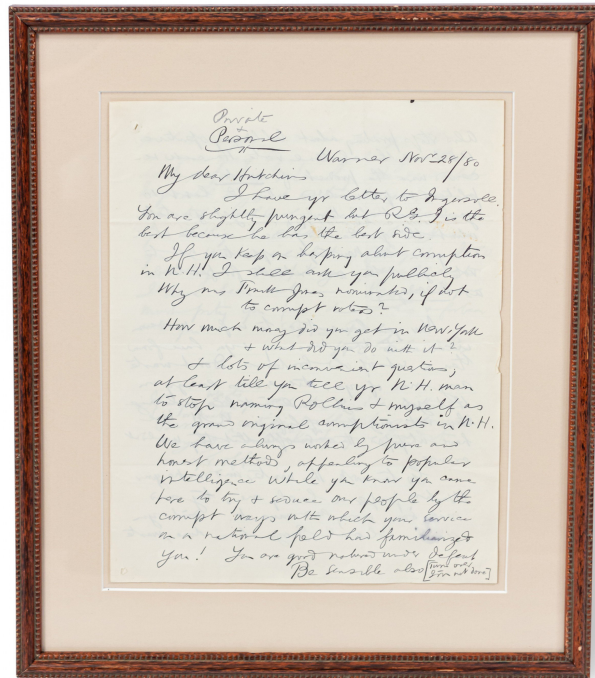 Private
+
Personal
Warner Nov 28/80
My dear Hutchins
I have yr letter to Ingersoll.
You are slightly pungent but R.G.I is the
best because he has the best side.
If you keep on harping about corruption
in N.H. I shall ask you publicly
Why was Frank Jones nominated, if not
to corrupt votes?
How much money did you get in New York
+ what did you do with it?
+ lots of inconvenient questions,
at least till you tell yr N.H. man
to stop naming Rollins + myself as
the grand original corruptionists in N.H.
We have always worked by pure and
honest methods, appealing to popular
intelligence while you know you came
here to try + seduce our people by the
corrupt ways with which your service
on a national field had familiarized
you! You are good natured under defeat
Be sensible also [Turn over